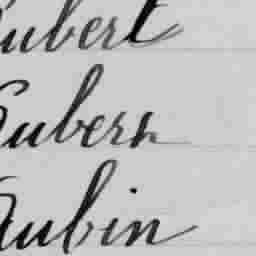 Aubert
Aubers
Aubin